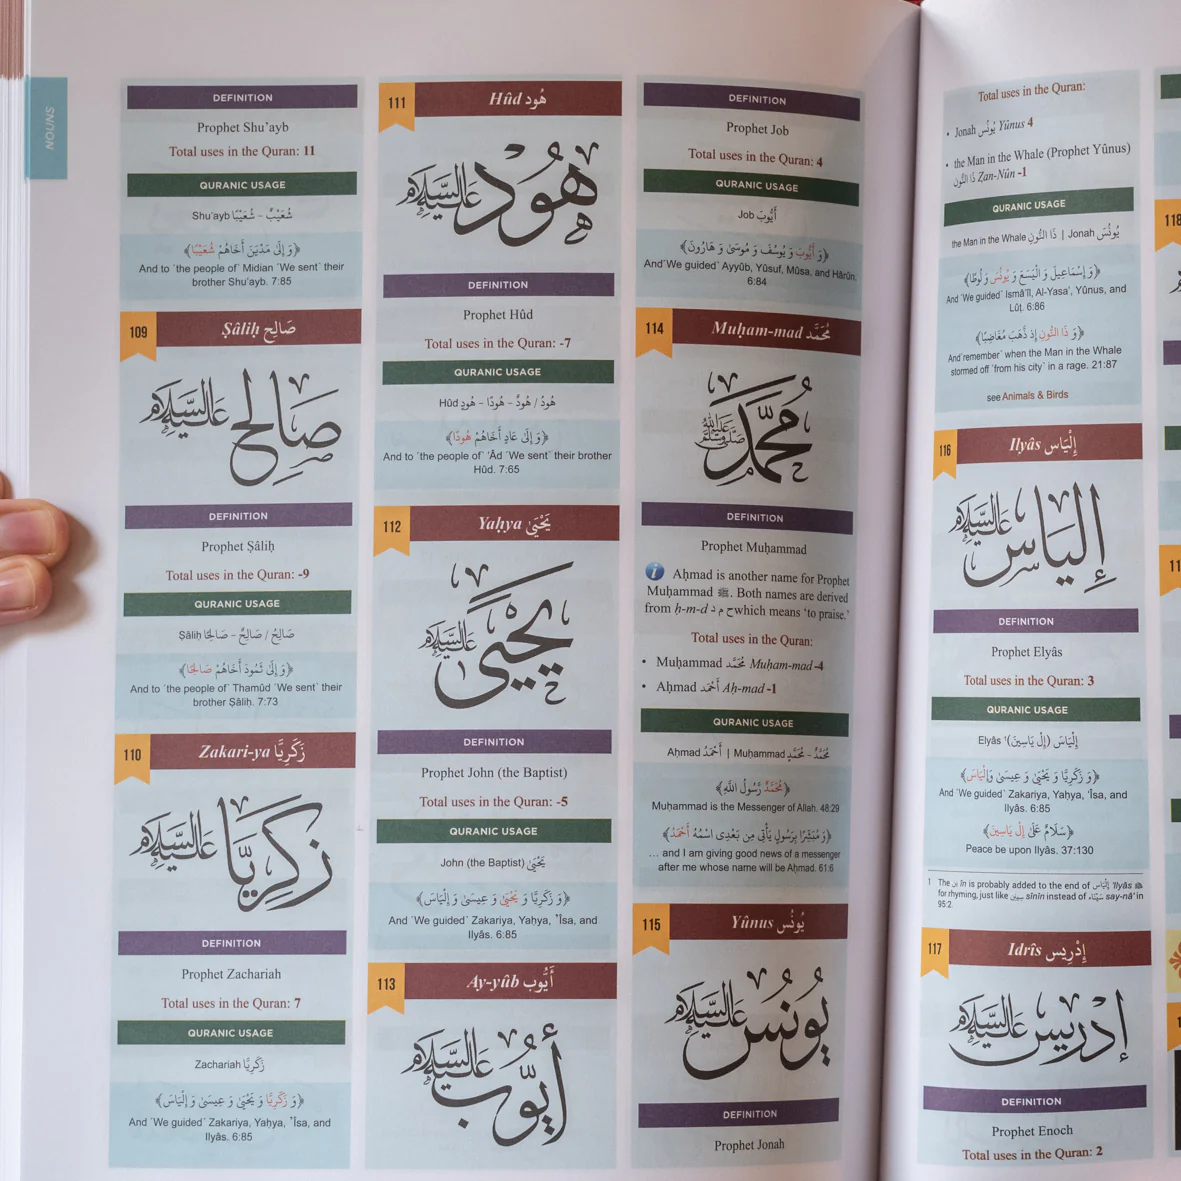 NOUNS
DEFINITION
Prophet Shu'ayb
Total uses in the Quran: 11
QURANIC USAGE
Shu'ayb شُعَيْبٌ – شُعَيْبًا
﴿وَ إِلَىٰ مَدْيَنَ أَخَاهُمْ شُعَيْبًا﴾
And to ˹the people of˺ Midian ˹We sent˺ their
brother Shu'ayb. 7:85
109
Ṣâliḥ صَالِح
صَالِح عَلَيْهِ السَّلَام
DEFINITION
Prophet Ṣâliḥ
Total uses in the Quran: -9
QURANIC USAGE
Ṣâliḥ صَالِحُ / صَالِحٌ – صَالِحًا
﴿وَ إِلَىٰ ثَمُودَ أَخَاهُمْ صَالِحًا﴾
And to ˹the people of˺ Thamûd ˹We sent˺ their
brother Ṣâliḥ. 7:73
110
Zakari-ya زَكَرِيَّا
زَكَرِيَّا عَلَيْهِ السَّلَام
DEFINITION
Prophet Zachariah
Total uses in the Quran: 7
QURANIC USAGE
Zachariah زَكَرِيَّا
﴿وَ زَكَرِيَّا وَ يَحْيَىٰ وَ عِيسَىٰ وَ إِلْيَاسَ﴾
And ˹We guided˺ Zakariya, Yaḥya, 'Îsa, and
Ilyâs. 6:85
111
Hûd هُود
هُود عَلَيْهِ السَّلَام
DEFINITION
Prophet Hûd
Total uses in the Quran: -7
QURANIC USAGE
Hûd هُودُ / هُودٌ – هُودًا – هُودٍ
﴿وَ إِلَىٰ عَادٍ أَخَاهُمْ هُودًا﴾
And to ˹the people of˺ 'Âd ˹We sent˺ their brother
Hûd. 7:65
112
Yaḥya يَحْيَىٰ
يَحْيَىٰ عَلَيْهِ السَّلَام
DEFINITION
Prophet John (the Baptist)
Total uses in the Quran: -5
QURANIC USAGE
John (the Baptist) يَحْيَىٰ
﴿وَ زَكَرِيَّا وَ يَحْيَىٰ وَ عِيسَىٰ وَ إِلْيَاسَ﴾
And ˹We guided˺ Zakariya, Yaḥya, 'Îsa, and
Ilyâs. 6:85
113
Ay-yûb أَيُّوب
أَيُّوب عَلَيْهِ السَّلَام
DEFINITION
Prophet Job
Total uses in the Quran: 4
QURANIC USAGE
Job أَيُّوبَ
﴿وَ أَيُّوبَ وَ يُوسُفَ وَ مُوسَىٰ وَ هَارُونَ﴾
And ˹We guided˺ Ayyûb, Yûsuf, Mûsa, and Hârûn.
6:84
114
Muḥam-mad مُحَمَّد
مُحَمَّد صَلَّى اللَّهُ عَلَيْهِ وَسَلَّم
DEFINITION
Prophet Muḥammad
Aḥmad is another name for Prophet
Muḥammad ﷺ. Both names are derived
from ḥ-m-d ح م د which means 'to praise.'
Total uses in the Quran:
• Muḥammad مُحَمَّد Muḥam-mad -4
• Aḥmad أَحْمَد Aḥ-mad -1
QURANIC USAGE
Aḥmad أَحْمَدُ | Muḥammad مُحَمَّدٌ – مُحَمَّدٍ
﴿مُحَمَّدٌ رَّسُولُ اللَّهِ﴾
Muḥammad is the Messenger of Allah. 48:29
﴿وَ مُبَشِّرًا بِرَسُولٍ يَأْتِي مِن بَعْدِي اسْمُهُ أَحْمَدُ﴾
… and I am giving good news of a messenger
after me whose name will be Aḥmad. 61:6
115
Yûnus يُونُس
يُونُس عَلَيْهِ السَّلَام
DEFINITION
Prophet Jonah
Total uses in the Quran:
• Jonah يُونُس Yûnus 4
• the Man in the Whale (Prophet Yûnus)
ذَا النُّون Ẓan-Nûn -1
QURANIC USAGE
the Man in the Whale ذَا النُّونِ | Jonah يُونُسَ
﴿وَ إِسْمَاعِيلَ وَ الْيَسَعَ وَ يُونُسَ وَ لُوطًا﴾
And ˹We guided˺ Ismâ'îl, Al-Yasa', Yûnus, and
Lûṭ. 6:86
﴿وَ ذَا النُّونِ إِذ ذَّهَبَ مُغَاضِبًا﴾
And ˹remember˺ when the Man in the Whale
stormed off ˹from his city˺ in a rage. 21:87
see Animals & Birds
116
Ilyâs إِلْيَاس
إِلْيَاس عَلَيْهِ السَّلَام
DEFINITION
Prophet Elyâs
Total uses in the Quran: 3
QURANIC USAGE
Elyâs ¹(إِلْيَاسَ (إِلْ يَاسِينَ
﴿وَ زَكَرِيَّا وَ يَحْيَىٰ وَ عِيسَىٰ وَإِلْيَاسَ﴾
And ˹We guided˺ Zakariya, Yaḥya, 'Îsa, and
Ilyâs. 6:85
﴿سَلَامٌ عَلَىٰ إِلْ يَاسِينَ﴾
Peace be upon Ilyâs. 37:130
1 The ين în is probably added to the end of إِلْيَاس 'Ilyâs
for rhyming, just like سِينِين sinîn instead of سَيْنَاء say-nâ' in
95:2.
117
Idrîs إِدْرِيس
إِدْرِيس عَلَيْهِ السَّلَام
DEFINITION
Prophet Enoch
Total uses in the Quran: 2
118